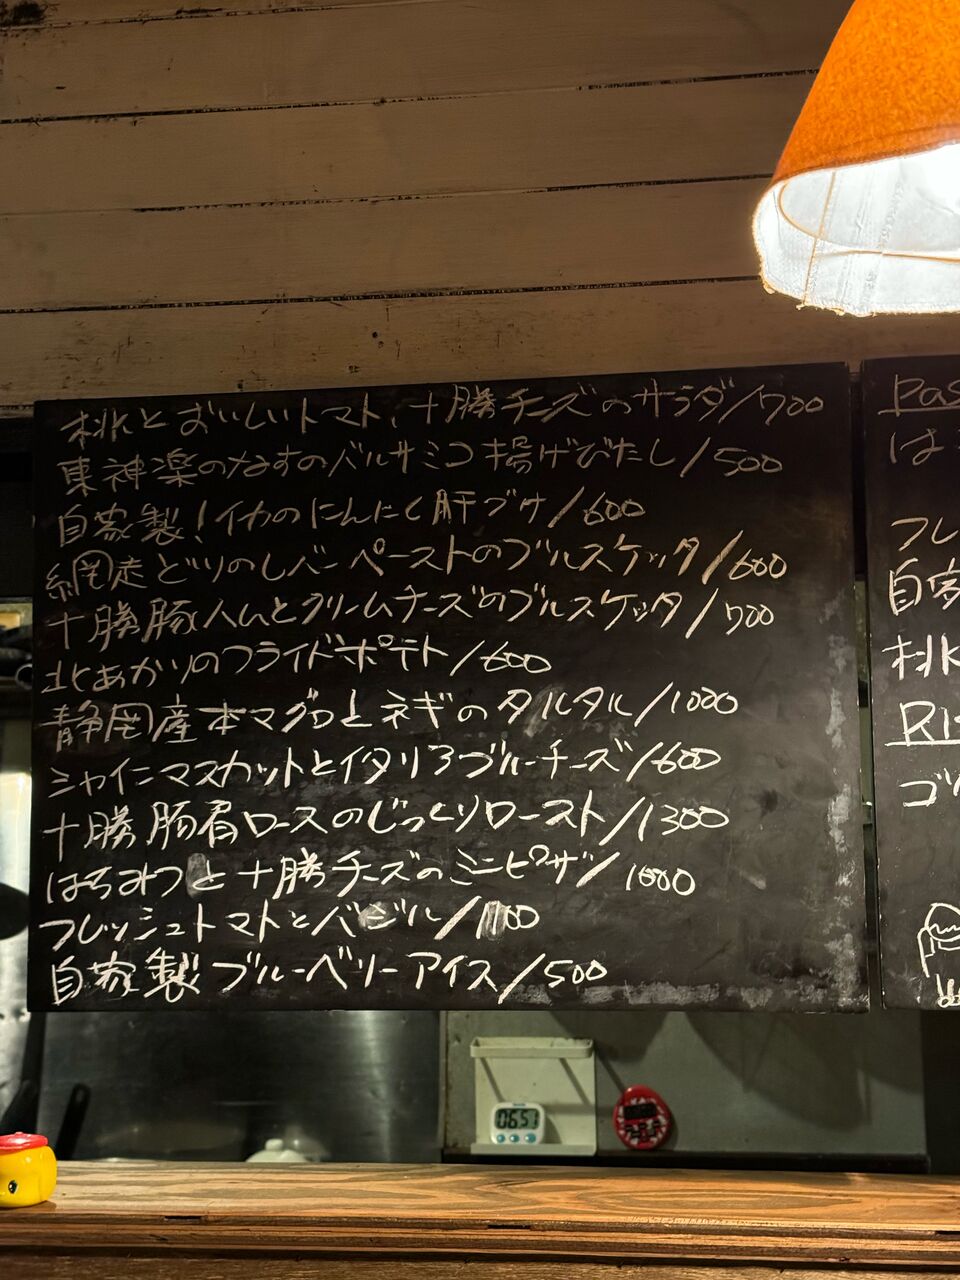 桃とおいしいトマト、十勝チーズのサラダ/700
東神楽のなすのバルサミコ揚げびたし/500
自家製!イカのにんにく肝づけ/600
網走どりのレバーペーストのブルスケッタ/600
十勝豚ハムとクリームチーズのブルスケッタ/700
北あかりのフライドポテト/600
静岡産本マグロとネギのタルタル/1000
シャインマスカットとイタリアブルーチーズ/600
十勝豚肩ロースのじっくりロースト/1300
はちみつと十勝チーズのミニピザ/1000
フレッシュトマトとバジル/
自家製ブルーベリーアイス/500
Pas
は
フレ
自家
桃
Ris
ゴル
06.57